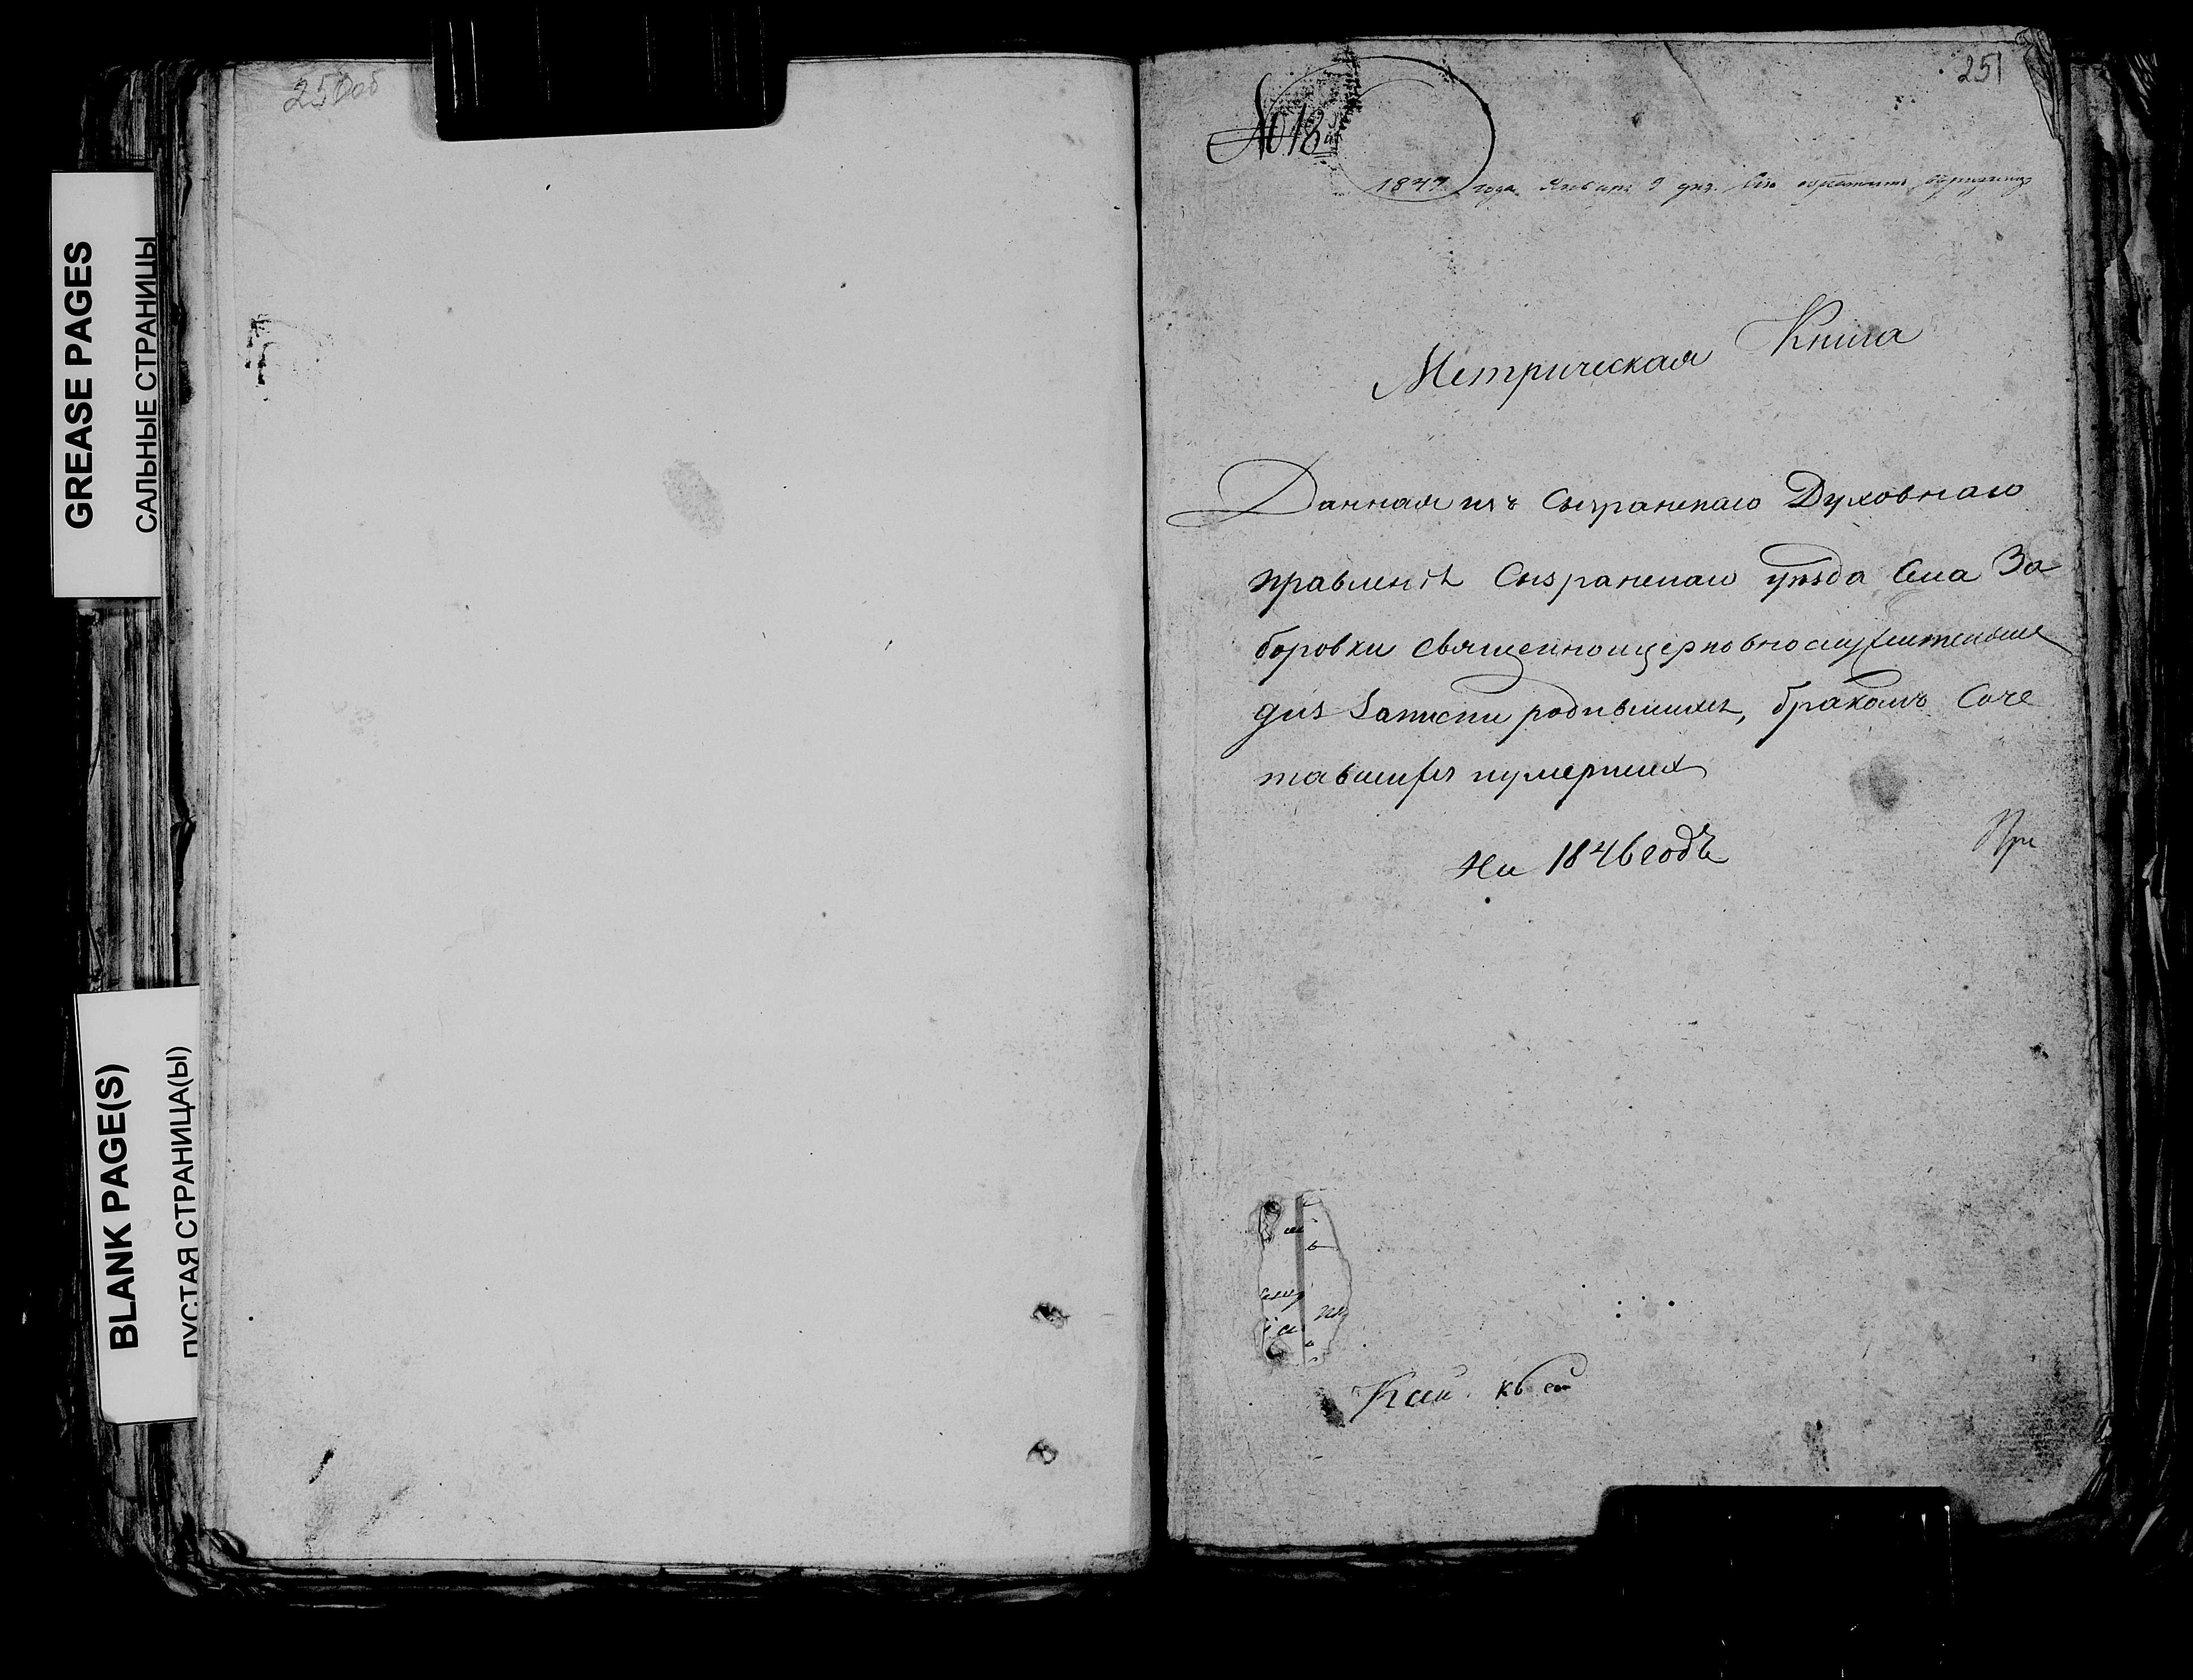 GREASE PAGES
САЛЬНЫЕ СТРАНИЦЫ
BLANK PAGE(S)
ПУСТАЯ СТРАНИЦА(Ы)
250об
251
№ 18
1847 года Января 9 дня.
Метрическая Книга
Данная изъ Сызранскаго Духовнаго
правленія Сызранскаго уѣзда Села За
боровки священноцерковнослужителямъ
для записи родившихся, бракомъ Соче
тавшихся и умершихъ
На 1846 годъ
При